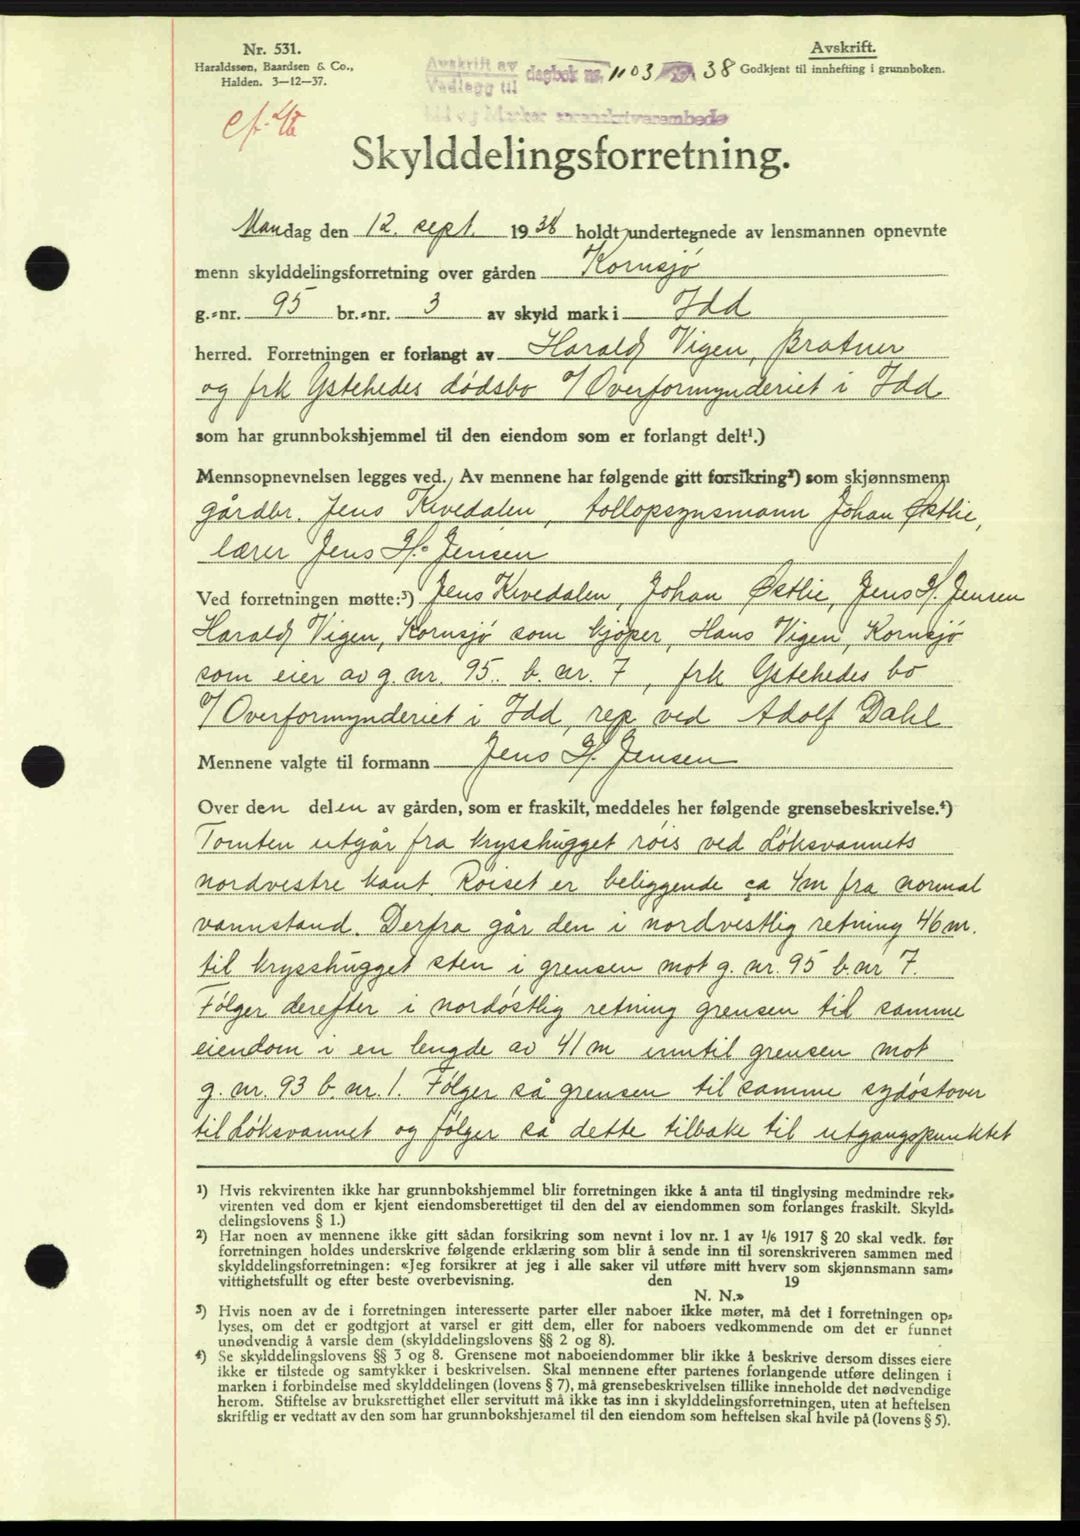 Nr. 531.
Haraldssen, Baardsen & Co.,
Halden. 3-12-37.
Avskrift.
Godkjent til innhefting i grunnboken.
Avskrift av
Vedlegg til
dagbok nr. 1103 19 38
Idd og Marker sorenskriverembede
Skylddelingsforretning.
Mandag den 12. sept. 1938 holdt undertegnede av lensmannen opnevnte
menn skylddelingsforretning over gården Kornsjø
g.-nr. 95 br.-nr. 3 av skyld mark i Idd
herred. Forretningen er forlangt av Harald Vigen, Pratner
og frk Ystehedes dødsbo v/Overformynderiet i Idd
som har grunnbokshjemmel til den eiendom som er forlangt delt¹.)
Mennsopnevnelsen legges ved. Av mennene har følgende gitt forsikring²) som skjønnsmenn
gårdbr. Jens Kvedalen, tollopsynsmann Johan Østlie,
lærer Jens H. Jensen
Ved forretningen møtte:³) Jens Kvedalen, Johan Østlie, Jens H. Jensen
Harald Vigen, Kornsjø som kjøper, Hans Vigen, Kornsjø
som eier av g. nr. 95. b. nr. 7, frk Ystehedes bo
v/Overformynderiet i Idd, rep ved Adolf Dahl
Mennene valgte til formann Jens H. Jensen
Over den delen av gården, som er fraskilt, meddeles her følgende grensebeskrivelse.⁴)
Tomten utgår fra krysshugget røis ved Løksvannets
nordvestre kant. Røiset er beliggende ca 4m fra normal
vannstand. Derfra går den i nordvestlig retning 46 m.
til krysshugget sten i grensen mot g. nr. 95 b. nr 7.
Følger derefter i nordøstlig retning grensen til samme
eiendom i en lengde av 41 m inntil grensen mot
g. nr. 93 b. nr. 1. Følger så grensen til samme sydøstover
til Løksvannet og følger så dette tilbake til utgangspunktet
¹) Hvis rekvirenten ikke har grunnbokshjemmel blir forretningen ikke å anta til tinglysing medmindre rek-
virenten ved dom er kjent eiendomsberettiget til den del av eiendommen som forlanges fraskilt. Skyld-
delingslovens § 1.)
²) Har noen av mennene ikke gitt sådan forsikring som nevnt i lov nr. 1 av ¹/₆ 1917 § 20 skal vedk. før
forretningen holdes underskrive følgende erklæring som blir å sende inn til sorenskriveren sammen med
skylddelingsforretningen: «Jeg forsikrer at jeg i alle saker vil utføre mitt hverv som skjønnsmann sam-
vittighetsfullt og efter beste overbevisning. den 19
N. N.»
³) Hvis noen av de i forretningen interesserte parter eller naboer ikke møter, må det i forretningen op-
lyses, om det er godtgjort at varsel er gitt dem, eller for naboers vedkommende om det er funnet
unødvendig å varsle dem (skylddelingslovens §§ 2 og 8).
⁴) Se skylddelingslovens §§ 3 og 8. Grensene mot naboeiendommer blir ikke å beskrive dersom disses eiere
ikke er tilstede og samtykker i beskrivelsen. Skal mennene efter partenes forlangende utføre delingen i
marken i forbindelse med skylddelingen (lovens § 7), må grensebeskrivelsen tillike inneholde det nødvendige
herom. Stiftelse av bruksrettighet eller servitutt må ikke tas inn i skylddelingsforretningen, uten at heftelsen
skriftlig er vedtatt av den som har grunnbokshjemmel til den eiendom som heftelsen skal hvile på (lovens § 5).